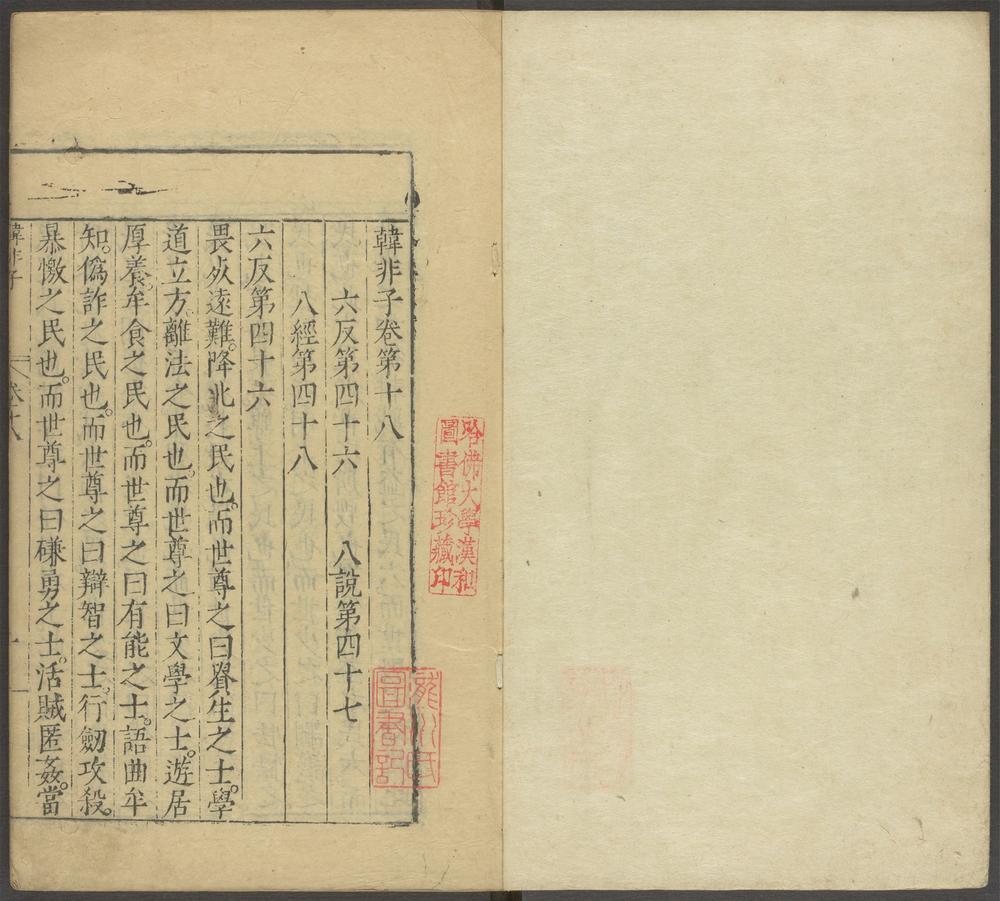 韓非子卷第十八
六反第四十六　八說第四十七
八經第四十八
六反第四十六
畏死遠難。降北之民也。而世尊之曰貴生之士。學
道立方。離法之民也。而世尊之曰文學之士。遊居
厚養。牟食之民也。而世尊之曰有能之士。語曲牟
知。僞詐之民也。而世尊之曰辯智之士。行劒攻殺。
暴憿之民也。而世尊之曰磏勇之士。活賊匿姦。當
韓非子　卷十八　一
哈佛大學漢和
圖書館珍藏印